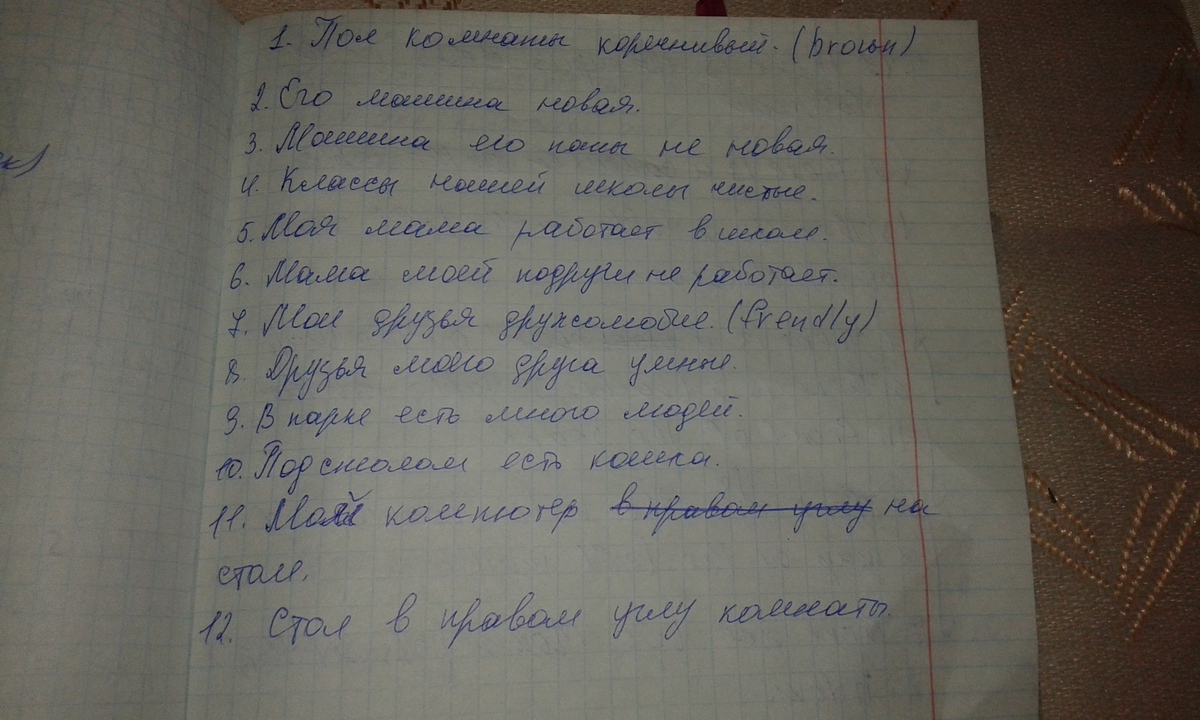 1. Пол комнаты коречнивый. (brown)
2. Его машина новая.
3. Машина его папы не новая.
4. Классы нашей школы чистые.
5. Моя мама работает в школе.
6. Мама моей подруги не работает.
7. Мои друзья дружсолюбие. (frendly)
8. Друзья моего друга умные.
9. В парке есть много людей.
10. Под столом есть кошка.
11. Мой компютер в правом углу на
столе.
12. Стол в правом углу комнаты.